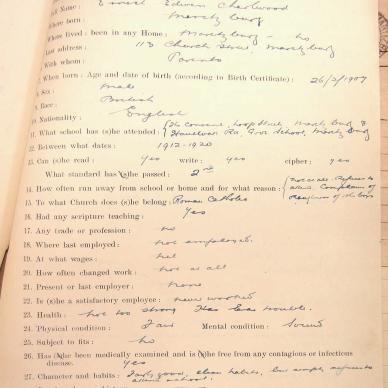 Full Name : Ernest Edwin Charlwood
Where born : Maritzburg
Where lived : been in any Home : Maritzburg - no
Last address : 113 Church Street, Maritzburg
With whom : Parents
7. When born : Age and date of birth (according to Birth Certificate) : 26/3/1907
8. Sex : male
9. Race : British
10. Nationality : English
11. What school has (s)he attended : The Convent, Loop Street, Maritzburg &
Rd, Govt School, Maritzburg
12. Between what dates : 1912-1920
13. Can (s)he read : yes write : yes cipher : yes
What standard has (s)he passed : 2nd
14. How often run away from school or home and for what reason : Refuses to
Complains of
the boys
15. To what Church does (s)he belong : Roman Catholic
16. Had any scripture teaching : yes
17. Any trade or profession : no
18. Where last employed : not employed
19. At what wages : nil
20. How often changed work : not at all
21. Present or last employer : none
22. Is (s)he a satisfactory employee : never worked
23. Health : not too strong Has trouble.
24. Physical condition : Fair Mental condition : Sound
25. Subject to fits : no
26. Has (s)he been medically examined and is (s)he free from any contagious or infectious
disease. Yes
27. Character and habits : Fairly good, clean habits, but
school.